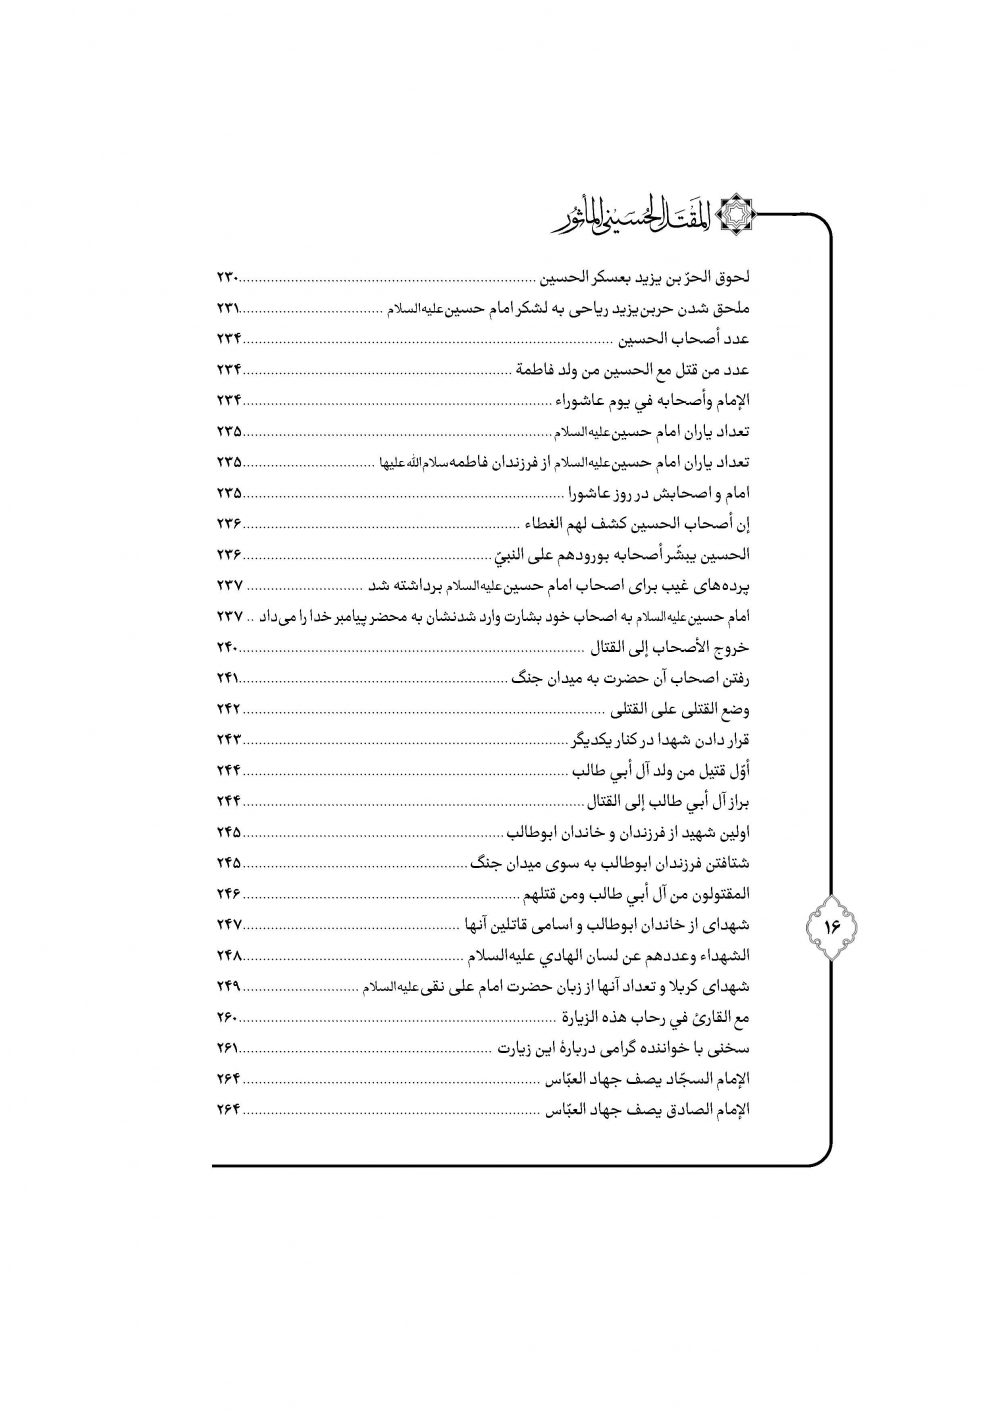 المَقتَل الحُسَیني المأثُور
لحوق الحرّ بن یزید بعسکر الحسین ........ ۲۳۰
ملحق شدن حربن‌یزید ریاحی به لشکر امام حسین علیه‌السلام ........ ۲۳۱
عدد أصحاب الحسین ........ ۲۳۴
عدد من قتل مع الحسین من ولد فاطمة ........ ۲۳۴
الإمام وأصحابه في یوم عاشوراء ........ ۲۳۴
تعداد یاران امام حسین علیه‌السلام ........ ۲۳۵
تعداد یاران امام حسین علیه‌السلام از فرزندان فاطمه سلام‌الله علیها ........ ۲۳۵
امام و اصحابش در روز عاشورا ........ ۲۳۵
إن أصحاب الحسین کشف لهم الغطاء ........ ۲۳۶
الحسین یبشّر أصحابه بورودهم علی النبيّ ........ ۲۳۶
پرده‌های غیب برای اصحاب امام حسین علیه‌السلام برداشته شد ........ ۲۳۷
امام حسین علیه‌السلام به اصحاب خود بشارت وارد شدنشان به محضر پیامبر خدا را می‌داد .. ۲۳۷
خروج الأصحاب إلی القتال ........ ۲۴۰
رفتن اصحاب آن حضرت به میدان جنگ ........ ۲۴۱
وضع القتلی علی القتلی ........ ۲۴۲
قرار دادن شهدا در کنار یکدیگر ........ ۲۴۳
أوّل قتیل من ولد آل أبي طالب ........ ۲۴۴
براز آل أبي طالب إلی القتال ........ ۲۴۴
اولین شهید از فرزندان و خاندان ابوطالب ........ ۲۴۵
شتافتن فرزندان ابوطالب به سوی میدان جنگ ........ ۲۴۵
المقتولون من آل أبي طالب ومن قتلهم ........ ۲۴۶
شهدای از خاندان ابوطالب و اسامی قاتلین آنها ........ ۲۴۷
الشهداء وعددهم عن لسان الهادي علیه‌السلام ........ ۲۴۸
شهدای کربلا و تعداد آنها از زبان حضرت امام علی نقی علیه‌السلام ........ ۲۴۹
مع القارئ في رحاب هذه الزیارة ........ ۲۶۰
سخنی با خواننده گرامی دربارهٔ این زیارت ........ ۲۶۱
الإمام السجّاد یصف جهاد العبّاس ........ ۲۶۴
الإمام الصادق یصف جهاد العبّاس ........ ۲۶۴
۱۶